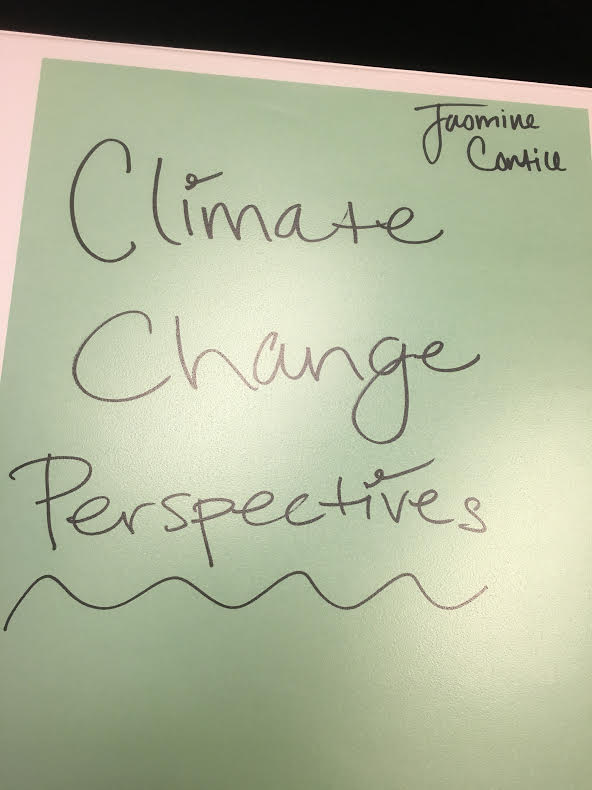 Jasmine
Cantill
Climate
Change
Perspectives